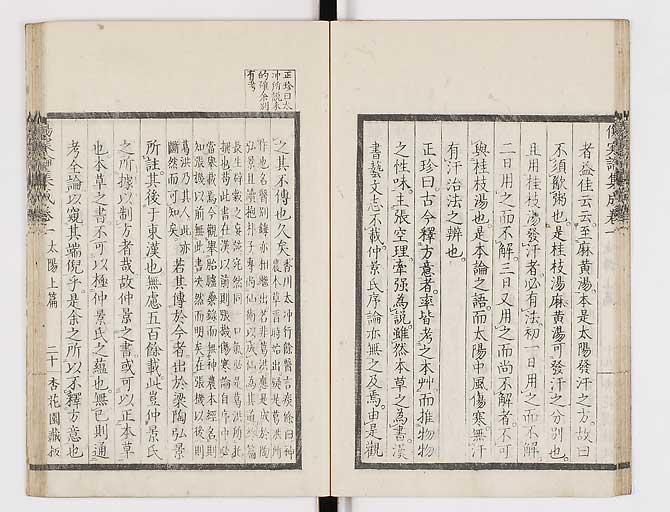 傷寒論集成卷一
者益佳云云至麻黃湯本是太陽發汗之方故曰
不須歠粥也是桂枝湯麻黃湯可發汗之分別也
且用桂枝湯發汗者必有法初一日用之而不解
二日用之而不解三日又用之而尚不解者不可
與桂枝湯也是本論之語而太陽中風傷寒無汗
有汗治法之辨也
正珍曰古今釋方意者率皆考之本艸而推物物
之性味主張空理牽强爲說雖然本草之爲書漢
書藝文志不載仲景氏序論亦無之及焉由是觀
正珍曰太
冲所說未
的確余別
有考
之其不傳也久矣香川太冲行餘醫言疾餘曰神
農本草
作也名醫別錄亦相繼出
弘景且讀抱朴子
長生辟穀之
撰也
當象載焉今觀
知張機以前無此書決然而明矣在張機以後
葛洪乃其人此亦
斷然而可知矣若其傳於今者出於梁陶弘景
所註其後于東漢也無慮五百餘載此豈仲景氏
之所據以制方者哉故仲景之書或可以正本草
也本草之書不可以極仲景氏之蘊也無已則通
考全論以窺其端倪乎是余之所以不釋方意也
傷寒論集成卷一 太陽上篇 二十一 杏花園藏板